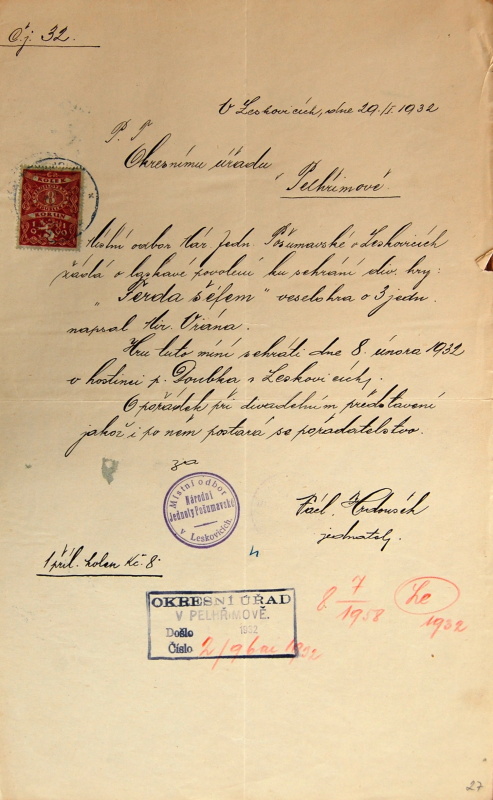 Č.j. 32.
V Leskovicích, dne 29./I. 1932
P. T.
Okresnímu úřadu
v Pelhřimově.
KOLEK
8
KORUN
Místní odbor Nár. Jedn. Pošumavské v Leskovicích
žádá o laskavé povolení ku sehrání div. hry:
„Ferda šéfem" veselohra o 3 jedn.
napsal
Hru tuto míní sehráti dne 8. února 1932
v hostinci p. Doubka v Leskovicích.
O pořádek při divadelním představení
jakož i po něm postará se pořadatelstvo.
za
Místní odbor
Národní
Jednoty Pošumavské
v Leskovicích.
Václ.
jednatel.
1 příl. kolek Kč. 8·
OKRESNÍ ÚŘAD
V PELHŘIMOVĚ.
Došlo 1932
Číslo 2/ 1932
8 7/1958
1932
27